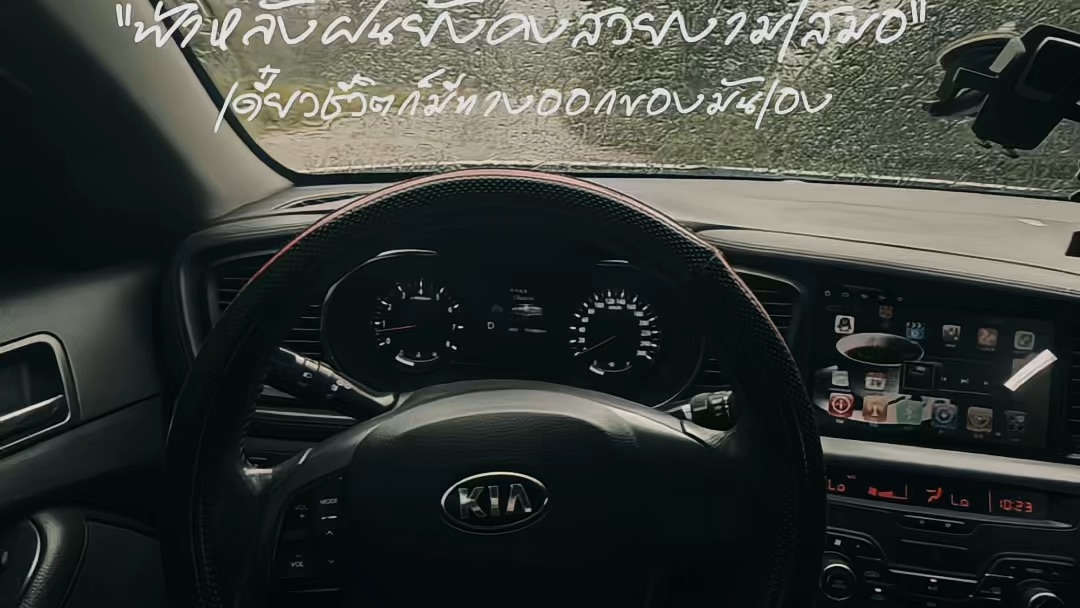 "ฟ้าหลังฝนยังคงสวยงามเสมอ"
เดี๋ยวชีวิตก็มีทางออกของมันเอง
D
KIA
MODE
VOL
Lo
Lo
10:23